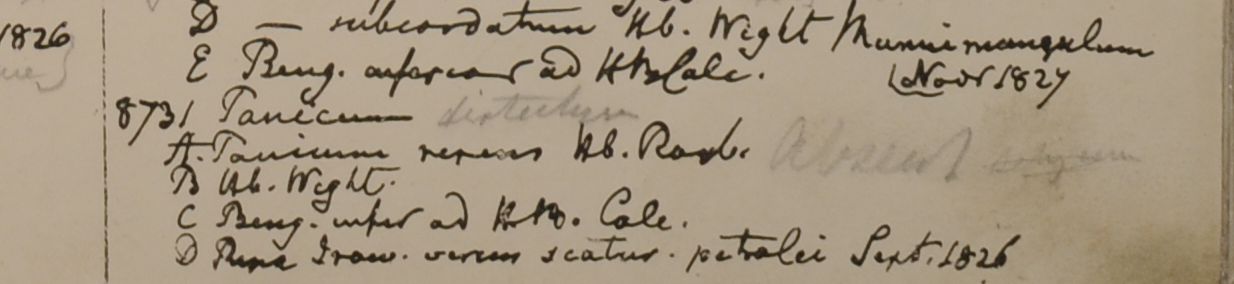 1826
D — subcordatum Hb. Wight
E Beng. ad HBCalc. Novr 1827
8731 Panicum
A. Panicum repens Hb. Roxb. Absent
B Hb. Wight.
C Beng. infer ad H.B. Calc.
D Ripa Iraw. versus scatur. petrolei Sept. 1826